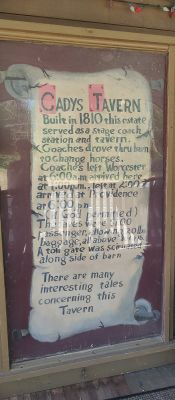 CADYS TAVERN
Built in 1810 this estate
served as a stage coach
station and tavern.
Coaches drove thru barn
to change horses.
Coaches left Worcester
at 6:00am arrived here
at 1:00p.m. left at 2:00
arrived at Providence
at 6:00 pm
(If God permitted)
passenger, allow
baggage, all above
A toll gate was
along side of barn
There are many
interesting tales
concerning this
Tavern